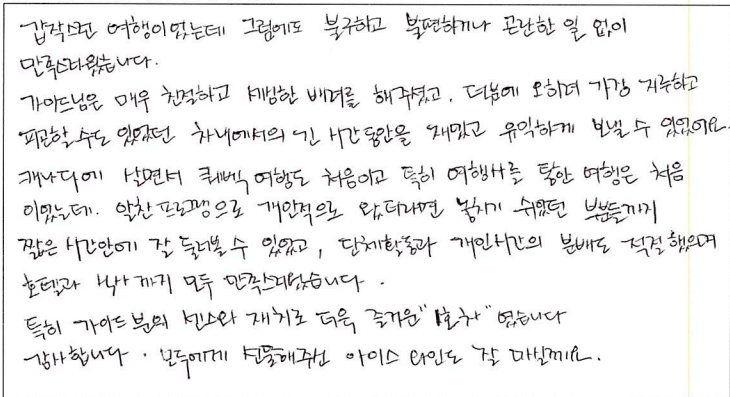 갑작스런 여행이었는데 그럼에도 불구하고 불편하거나 곤란한 일 없이
만족스러웠습니다.
가이드님은 매우 친절하고 세심한 배려를 해주셨고, 덕분에 오히려 가장 지루하고
피곤할 수도 있었던 차내에서의 긴 시간동안을 재밌고 유익하게 보낼 수 있었어요.
캐나다에 살면서 퀘벡 여행도 처음이고 특히 여행사를 통한 여행은 처음
이었는데. 알찬 프로그램으로 개인적으로 왔더라면 놓치기 쉬웠던 부분들까지
짧은 시간안에 잘 둘러볼 수 있었고, 단체활동과 개인시간의 분배도 적절했으며
호텔과 식사까지 모두 만족스러웠습니다.
특히 가이드 분의 센스와 재치로 더욱 즐거운 "1호차" 였습니다
감사합니다. 모두에게 선물해주신 아이스 와인도 잘 마실께요.